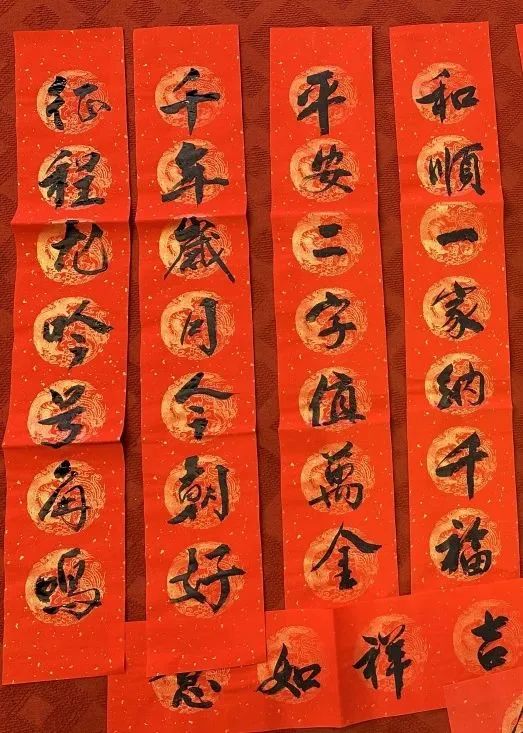 和順一家納千福
平安二字值萬金
千年歲月今朝好
征程龙吟号角鸣
吉祥如意